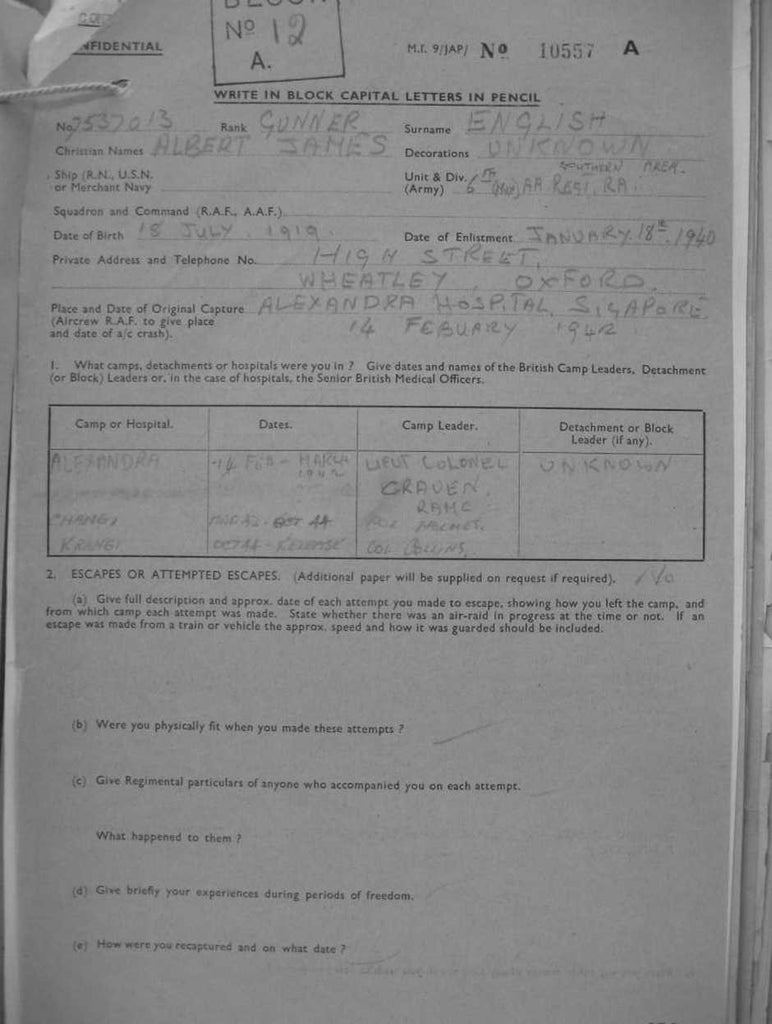 Nº 12
A.
CONFIDENTIAL
M.I. 9/JAP/ Nº 10557 A
WRITE IN BLOCK CAPITAL LETTERS IN PENCIL
No. 7537013 Rank GUNNER Surname ENGLISH
Christian Names ALBERT JAMES Decorations UNKNOWN
SOUTHERN AREA.
Ship (R.N., U.S.N. or Merchant Navy Unit & Div. (Army) 6TH AA REGT, RA.
Squadron and Command (R.A.F., A.A.F.)
Date of Birth 18 JULY. 1919. Date of Enlistment JANUARY. 18TH. 1940
Private Address and Telephone No. HIGH STREET,
WHEATLEY, OXFORD,
Place and Date of Original Capture ALEXANDRA HOSPITAL, SIGAPORE.
(Aircrew R.A.F. to give place 14 FEBUARY 1942
and date of a/c crash).
1. What camps, detachments or hospitals were you in ? Give dates and names of the British Camp Leaders, Detachment
(or Block) Leaders or, in the case of hospitals, the Senior British Medical Officers.
Camp or Hospital. Dates. Camp Leader. Detachment or Block
Leader (if any).
ALEXANDRA 14 FEB - MARCH LIEUT COLONEL UNKNOWN
1942 CRAVEN,
RAMC
CHANGI OCT 44
KRANGI OCT 44 - RELEASE COL COLLINS,
2. ESCAPES OR ATTEMPTED ESCAPES. (Additional paper will be supplied on request if required). No
(a) Give full description and approx. date of each attempt you made to escape, showing how you left the camp, and
from which camp each attempt was made. State whether there was an air-raid in progress at the time or not. If an
escape was made from a train or vehicle the approx. speed and how it was guarded should be included.
(b) Were you physically fit when you made these attempts ?
(c) Give Regimental particulars of anyone who accompanied you on each attempt.
What happened to them ?
(d) Give briefly your experiences during periods of freedom.
(e) How were you recaptured and on what date ?